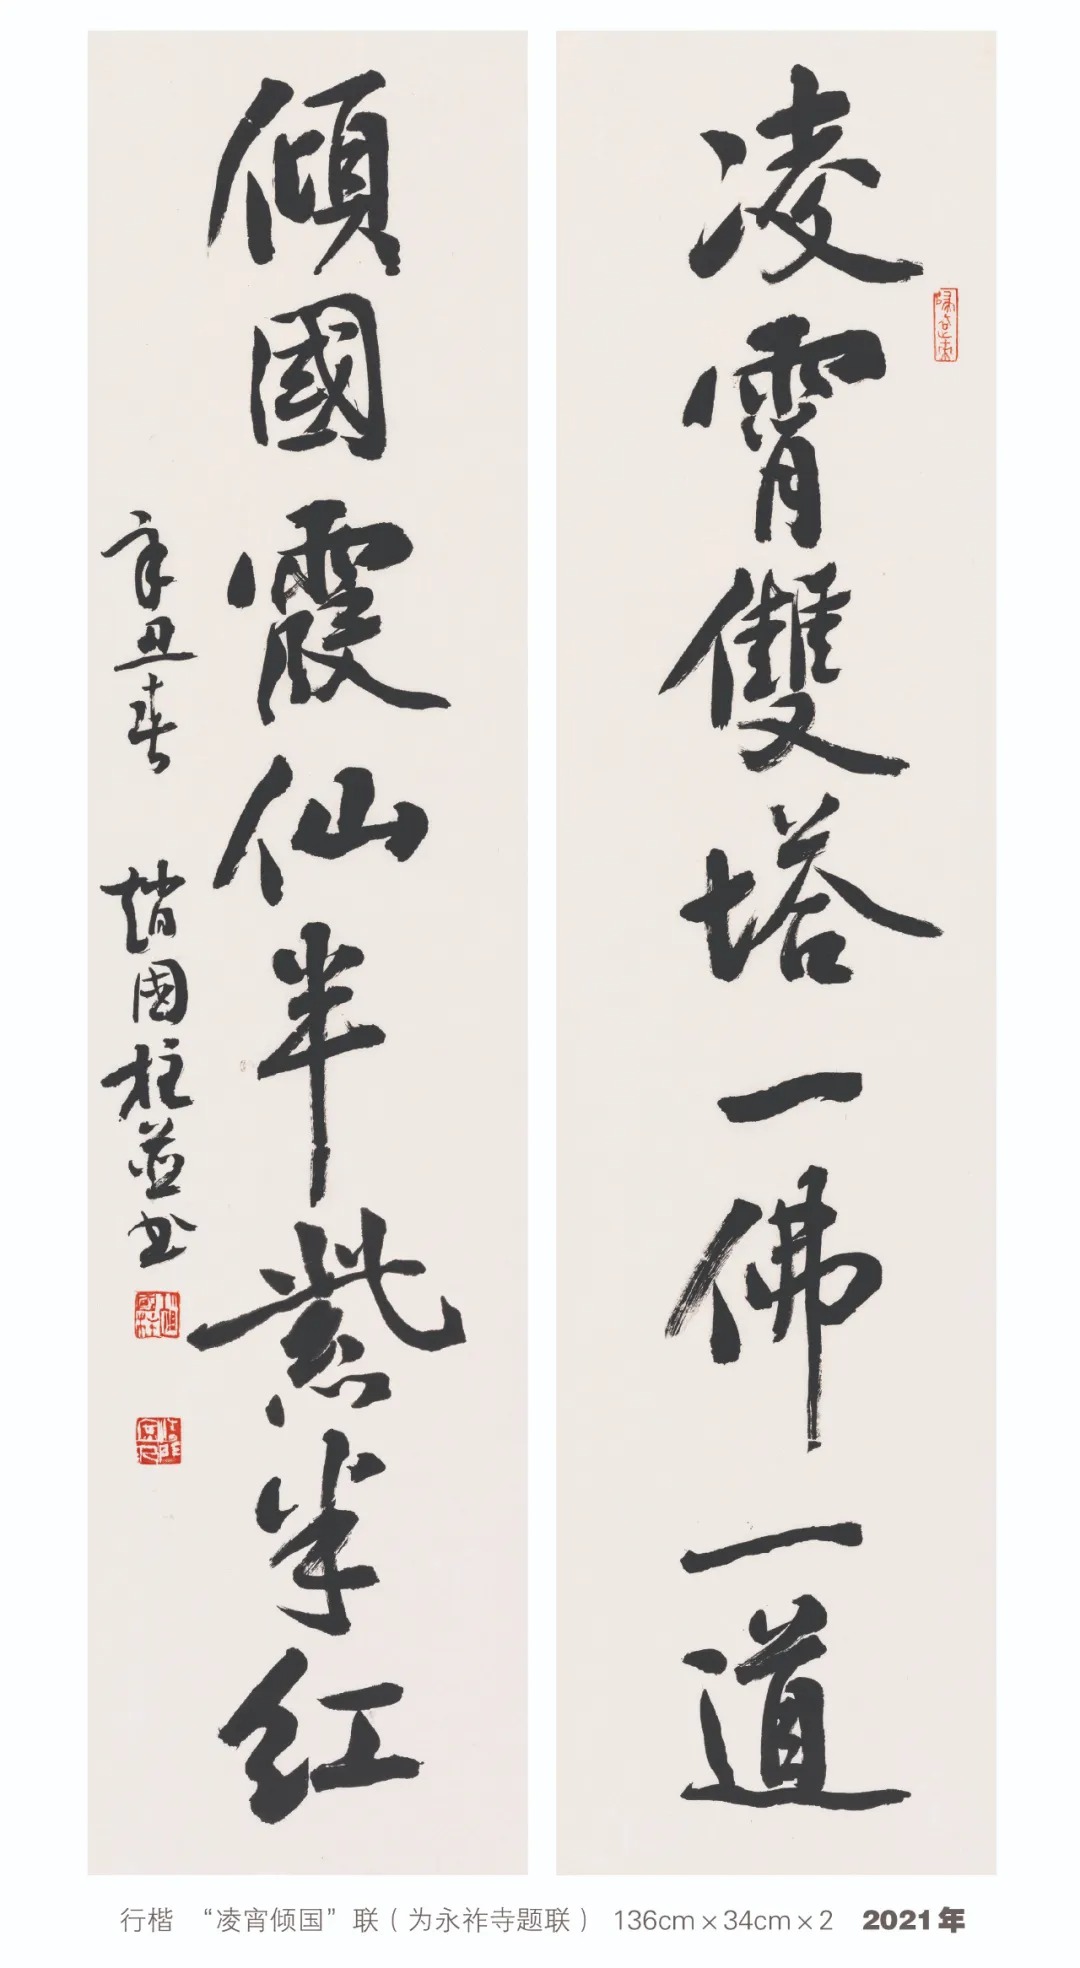 凌霄雙塔一佛一道
傾國霞仙半紫半红
辛丑春 趙國柱並书
行楷 “凌宵倾国”联（为永祚寺题联） 136cm×34cm×2 2021年